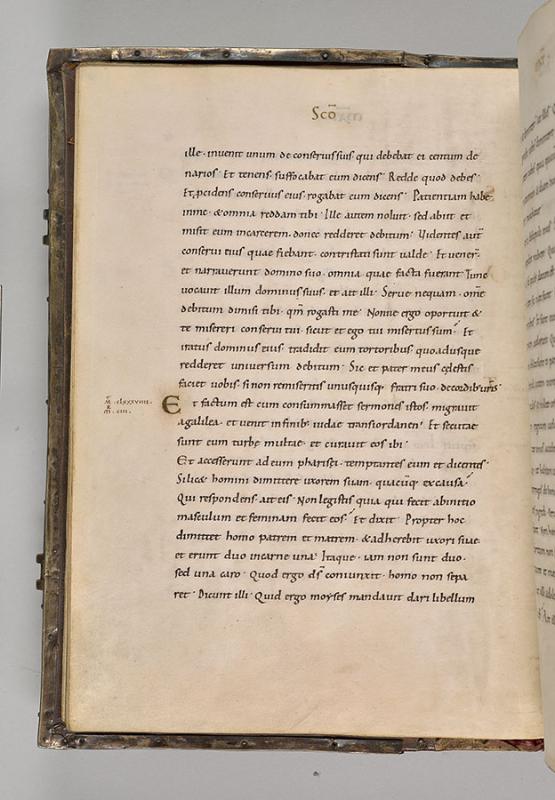 Scō
ille · invenit unum de conservis suis qui debebat ei centum de
narios · Et tenens suffocabat eum dicens · Redde quod debes ·
Et ꝓcidens conservus eius rogabat eum dicens · Patientiam habe
in me · & omnia reddam tibi · Ille autem noluit · sed abiit et
misit eum in carcerem · donec redderet debitum · Videntes aut̄
conservi eius quae fiebant · contristati sunt valde · Et vener̄
et narraverunt domino suo · omnia quae facta fuerant · Tunc
vocavit illum dominus suus · et ait illi · Serve nequam · om̄e
debitum dimisi tibi · qm̄ rogasti me · Nonne ergo oportuit &
te misereri conservi tui · sicut et ego tui misertus sum · Et
iratus dominus eius · tradidit eum tortoribus · quo adusque
redderet universum debitum · Sic et pater meus cęlestis
faciet vobis · si non remiseritis unusquisq; fratri suo · de cordib; vr̄is ·
Et factum est cum consummasset sermones istos · migravit
a galilea · et venit in finib; iudae trans iordanen · Et secutae
sunt eum turbę multae · et curavit eos ibi ·
Et accesserunt ad eum pharisei · temptantes eum et dicentes ·
Si lic& homini dimittere uxorem suam · quacūq; ex causa ·
Qui respondens · ait eis · Non legistis quia qui fecit ab initio
masculum et feminam fecit eos · Et dixit · Propter hoc
dimittet homo patrem et matrem · & adherebit uxori suae ·
et erunt duo in carne una · Itaque · iam non sunt duo ·
sed una caro · Quod ergo ds̄ coniunxit · homo non sepa
ret · Dicunt illi · Quid ergo moyses mandavit dari libellum